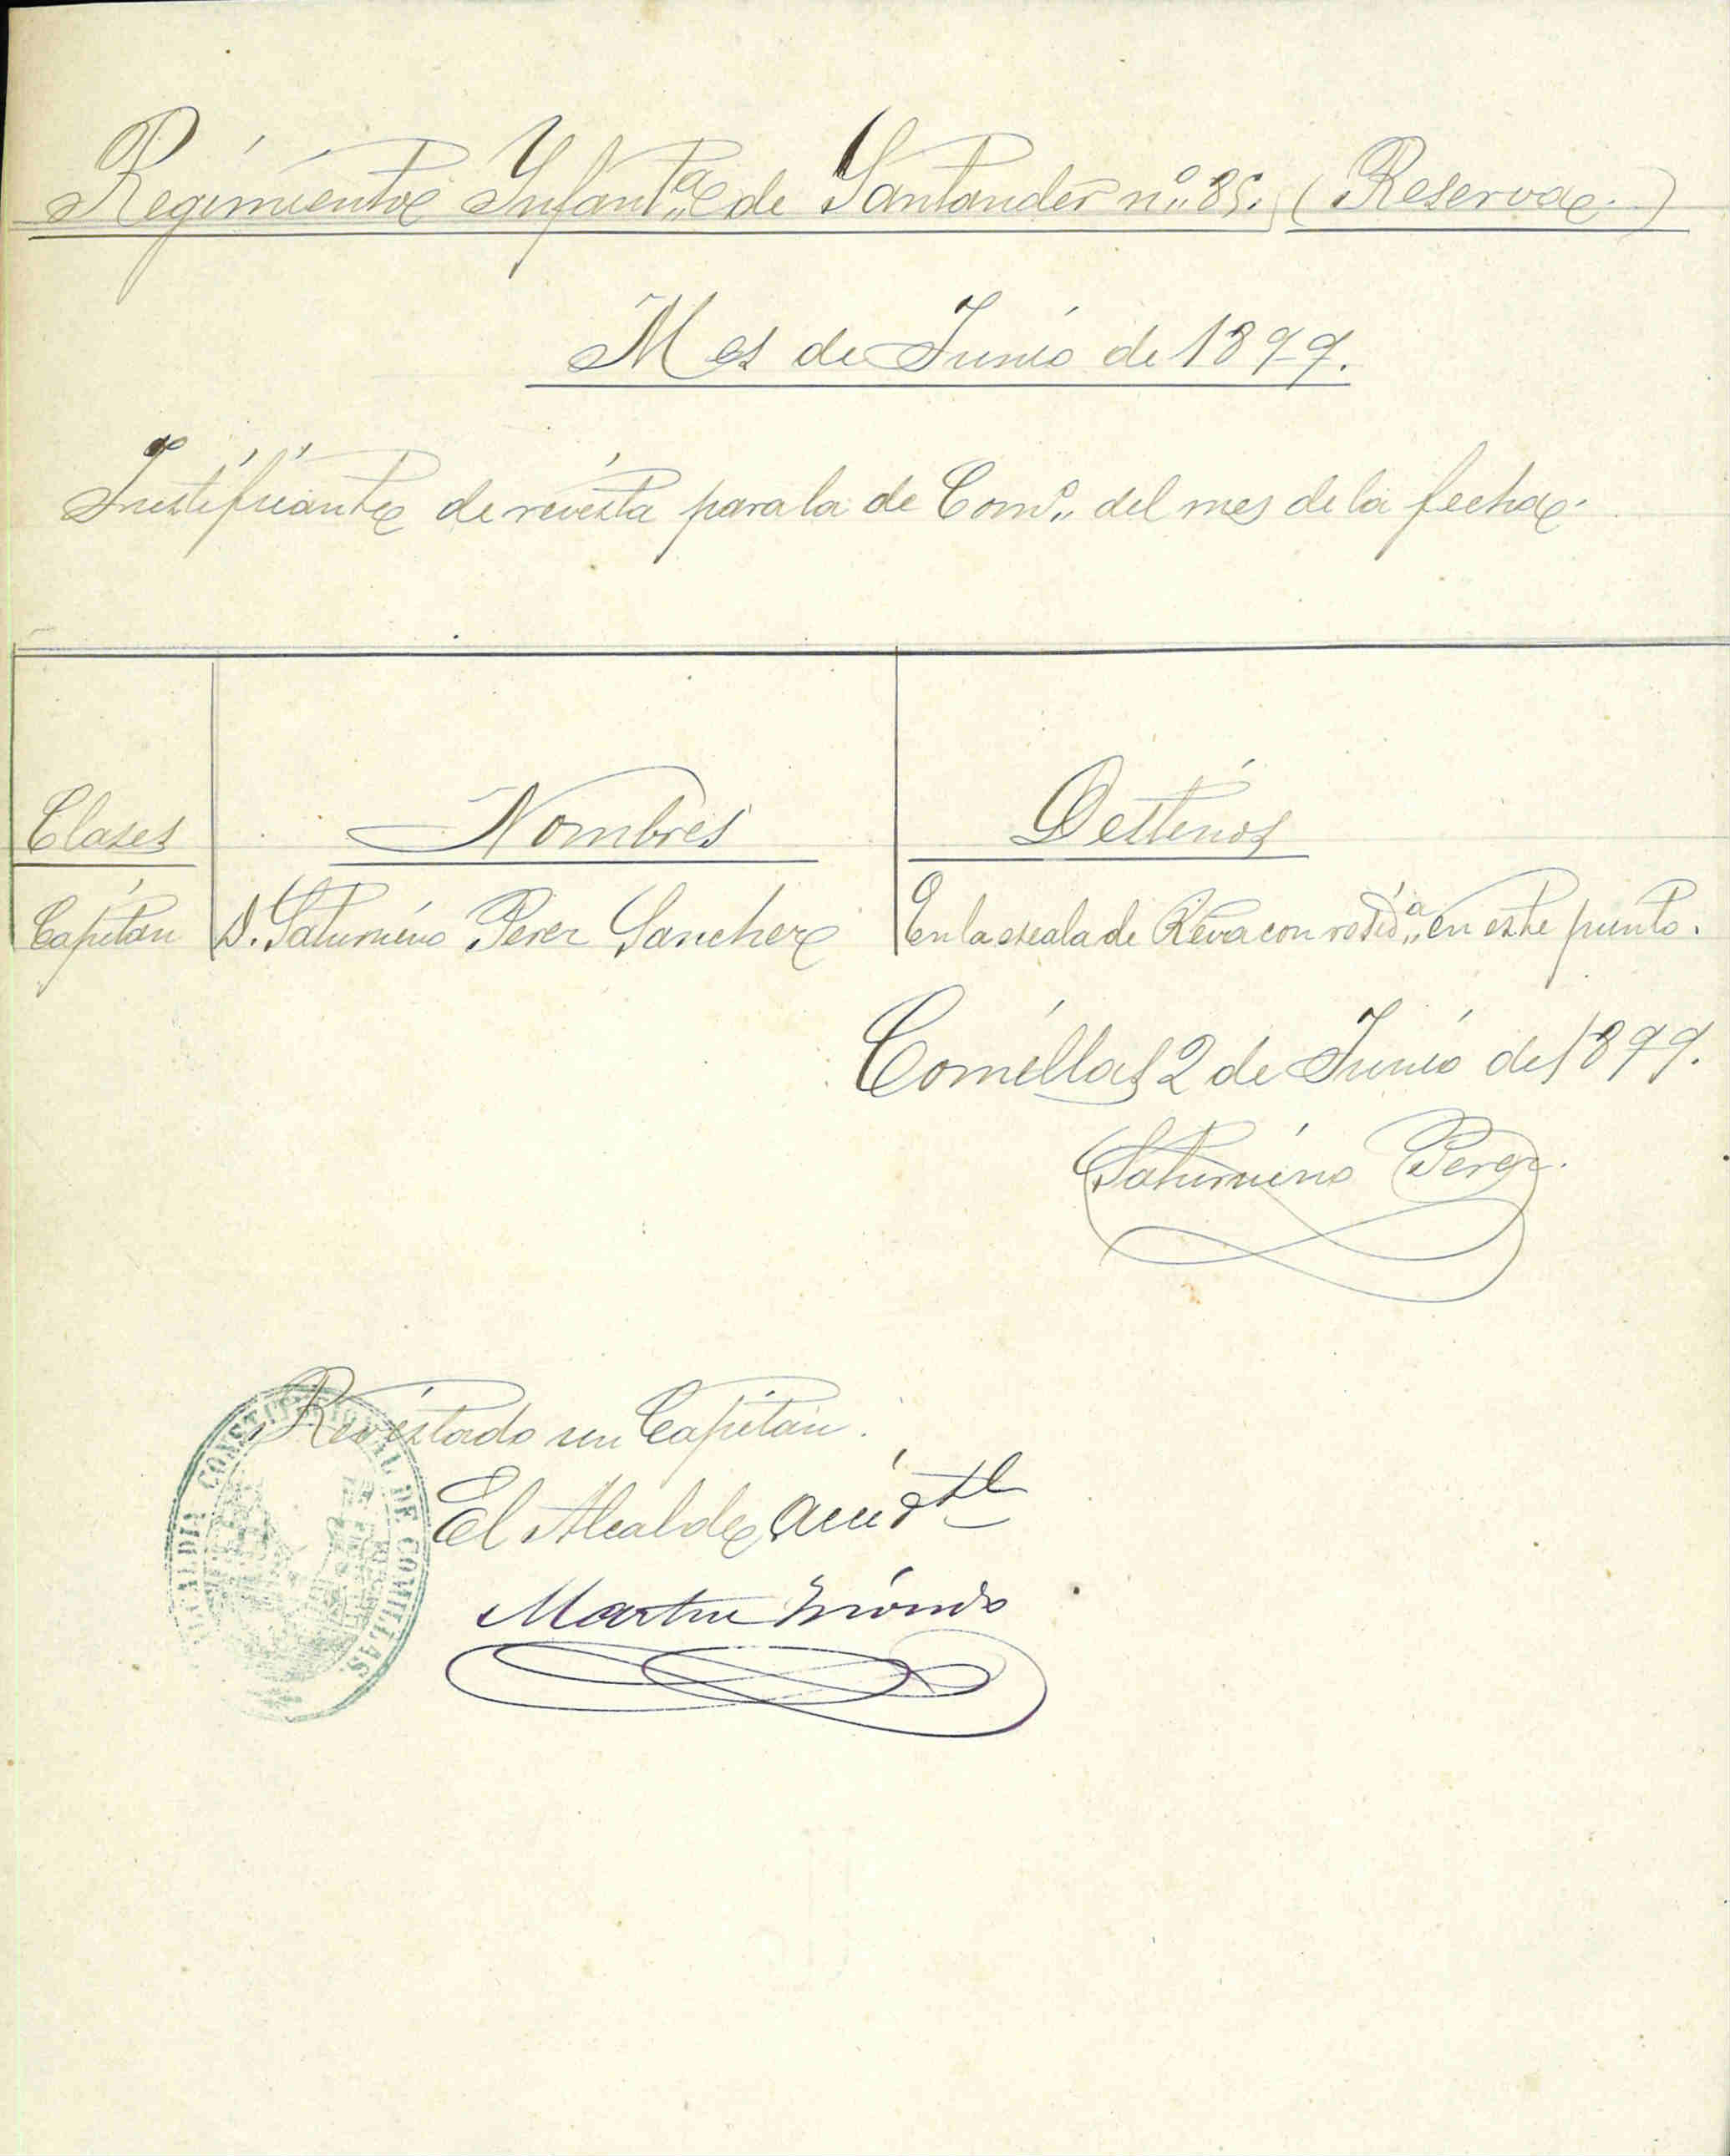 Regimiento Infantª de Santander nº 85. (Reserva.)
Mes de Junio de 1899.
Justificante de revista para la de Comº del mes de la fecha.
Clases Nombres Destinos
Capitan D. Saturnino Perez Sanchez En la escala de Rva con residª en este punto.
Comillas 2 de Junio de 1899.
Saturnino Perez.
Revistado un Capitan.
El Alcalde accidtl
Martin
ALCALDIA CONSTITUCIONAL DE COMILLAS